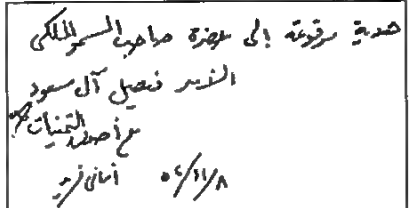 هدية مرفوعة إلى حضرة صاحب السمو الملكي
الأمير فيصل آل سعود
مع أصدق التمنيات
أماني فريد ٥٤/١١/٨